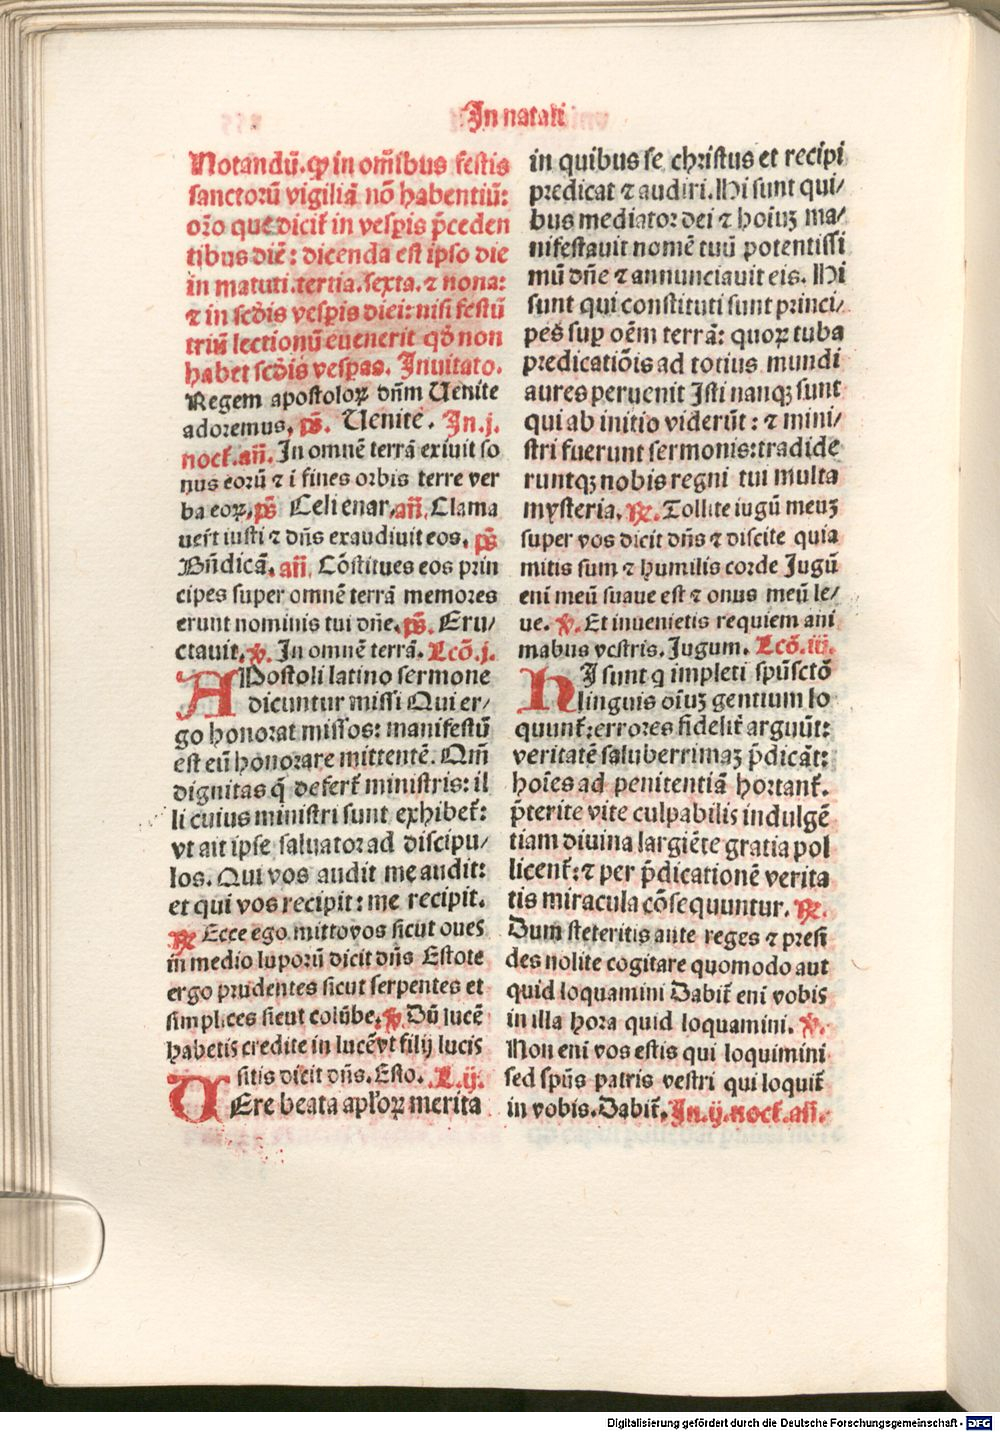 In natali
Notandū. ꝙ in om̄ibus festis
sanctorū vigiliā nō habentiū:
orō que dicit̄ in vesꝑis p̄ceden
tibus diē: dicenda est ipso die
in matuti. tertia. sexta. ⁊ nona:
⁊ in scđis vesꝑis diei: nisi festū
triū lectionū euenerit qđ non
habet scđis vesꝑas. Inuitato.
Regem apostoloꝝ dn̄m Uenite
adoremus. ps̄. Uenite. In .j.
noct̄. an̄. In omnē terrā exiuit so
nus eorū ⁊ i fines orbis terre ver
ba eoꝝ. ps̄ Celi enar. an̄. Clama
uer̄t iusti ⁊ dn̄s exaudiuit eos. ps̄
Bn̄dicā. an̄. Cōstitues eos prin
cipes super omnē terrā memores
erunt nominis tui dn̄e. ps̄. Eru/
ctauit. ℣. In omnē terrā. Lcō. j.
APostoli latino sermone
dicuntur missi Qui er/
go honorat missos: manifestū
est eū honorare mittentē. Om̄
dignitas q̄ defert̄ ministris: il
li cuius ministri sunt exhibet̄:
vt ait ipse saluator ad discipu/
los. Qui vos audit me audit:
et qui vos recipit: me recipit.
℟ Ecce ego mitto vos sicut oues
in medio luporū dicit dn̄s Estote
ergo prudentes sicut serpentes et
simplices sicut colūbe. ℣. Dū lucē
habetis credite in lucē vt filij lucis
sitis dicit dn̄s. Esto. L. ij.
UEre beata apl̄oꝝ merita
in quibus se christus et recipi
predicat ⁊ audiri. Hi sunt qui/
bus mediator dei ⁊ hoīuꝫ ma/
nifestauit nomē tuū potentissi
mū dn̄e ⁊ annunciauit eis. Hi
sunt qui constituti sunt princi/
pes suꝑ oēm terrā: quoꝝ tuba
predicatiōis ad totius mundi
aures peruenit Isti nanqꝫ sunt
qui ab initio viderūt: ⁊ mini/
stri fuerunt sermonis: tradide
runtqꝫ nobis regni tui multa
mysteria. ℟. Tollite iugū meuꝫ
super vos dicit dn̄s ⁊ discite quia
mitis sum ⁊ humilis corde Jugū
eni meū suaue est ⁊ onus meū le/
ue. ℣. Et inuenietis requiem ani
mabus vestris. Jugum. Lcō. iij.
HI sunt q impleti spū sctō
linguis oīuꝫ gentium lo
quunt̄: errores fidelit̄ arguūt:
veritatē saluberrimaꝫ p̄dicāt:
hoīes ad penitentiā hortant̄.
p̄terite vite culpabilis indulgē
tiam diuina largiēte gratia pol
licent̄: ⁊ per p̄dicationē verita
tis miracula cōsequuntur. ℟.
Dum steteritis ante reges ⁊ presi
des nolite cogitare quomodo aut
quid loquamini Dabit̄ eni vobis
in illa hora quid loquamini. ℣.
Non eni vos estis qui loquimini
sed spūs patris vestri qui loquit̄
in vobis. Dabit̄. In .ij. noct̄. an̄.
Digitalisierung gefördert durch die Deutsche Forschungsgemeinschaft - DFG